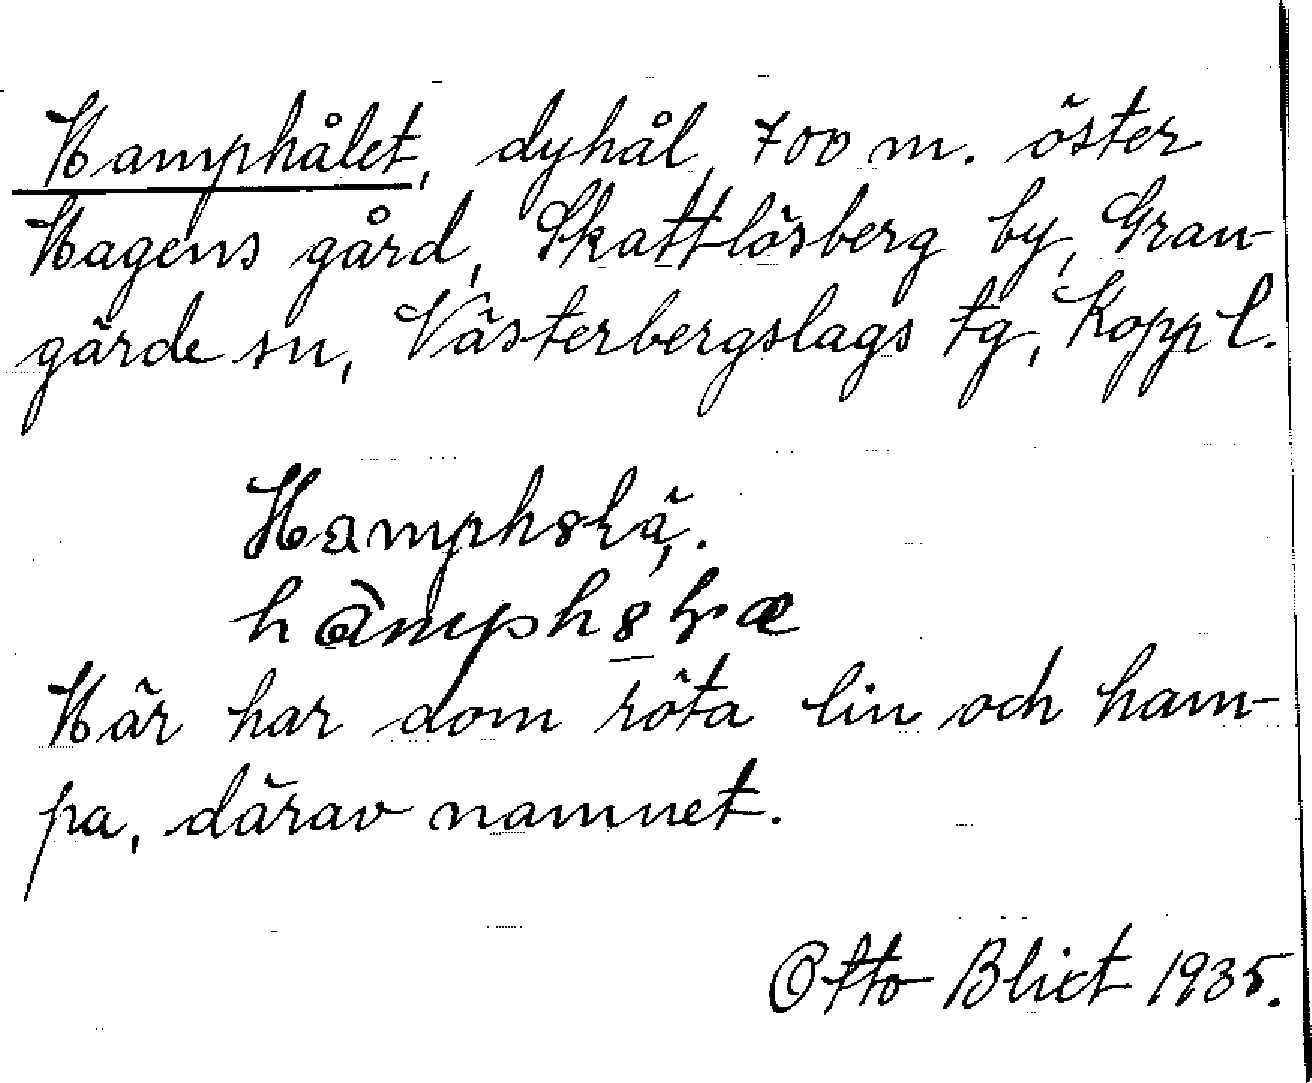 Hamphålet, dyhål, 700 m. öster
Hagens gård, Skattlösberg by, Gran-
gärde sn, Västerbergslags tg, Kopp l.
Här har dom röta lin och ham-
pa, därav namnet.
Otto Blixt 1935.